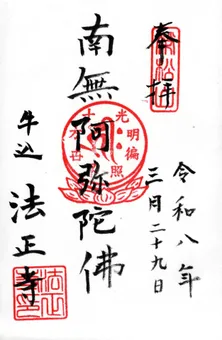 奉拝
令和八年
三月二十九日
南無阿弥陀佛
光明徧照
牛込
法正寺